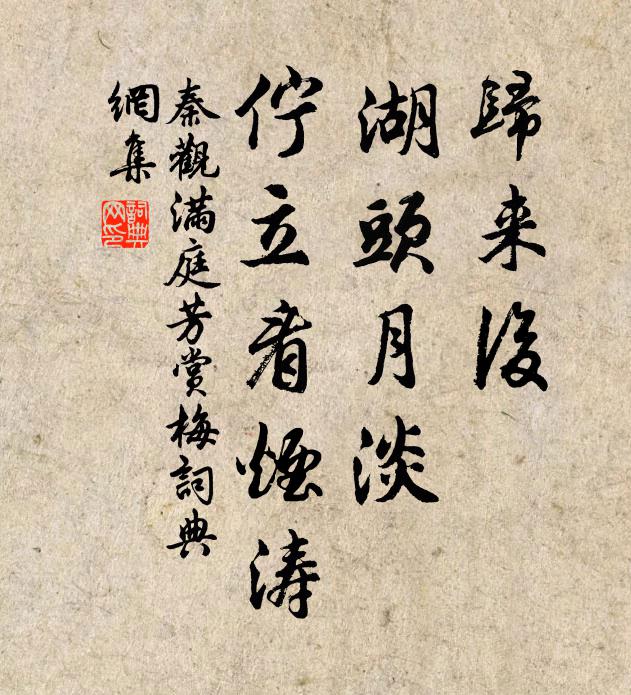 歸来後
湖頭月淡
佇立看煙濤
秦觀滿庭芳賞梅詞典
網集
詞典网印